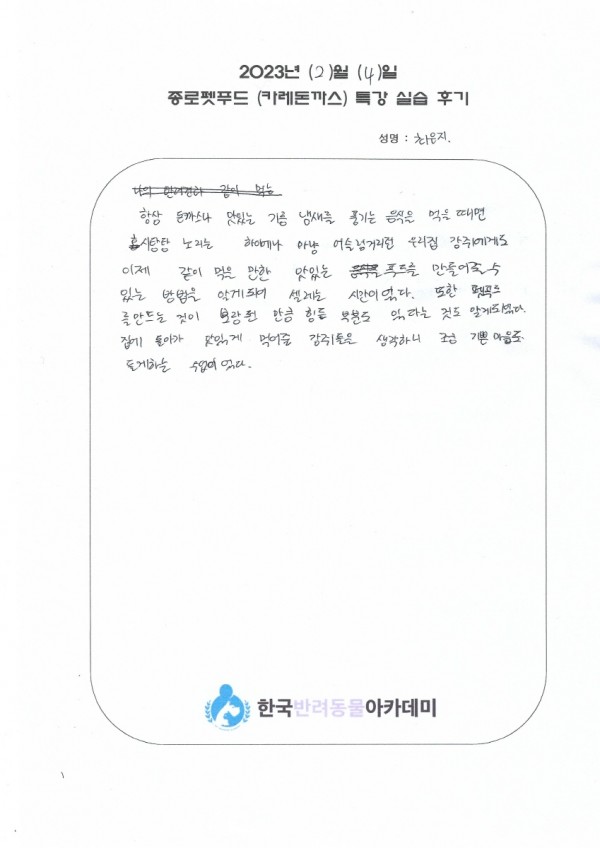 2023년 (2)월 (4)일
종로펫푸드 (카레돈까스) 특강 실습 후기
성명 : 최은지.
나의 반려견과 같이 먹는
항상 돈까스나 맛있는 기름 냄새를 풍기는 음식을 먹을 때면
호시탐탐 노리는 하이에나 마냥 어슬렁거리던 우리집 강쥐에게도
이제 같이 먹을 만한 맛있는 푸드를 만들어줄 수
있는 방법을 알게되어 설레는 시간이었다. 또한 펫푸드
를 만드는 것이 보람찬 만큼 힘든 부분도 있다는 것도 알게되었다.
집가 돌아가 맛있게 먹어줄 강쥐들을 생각하니 조금 기쁜 마음도
들게하는 수업이었다.
한국반려동물아카데미